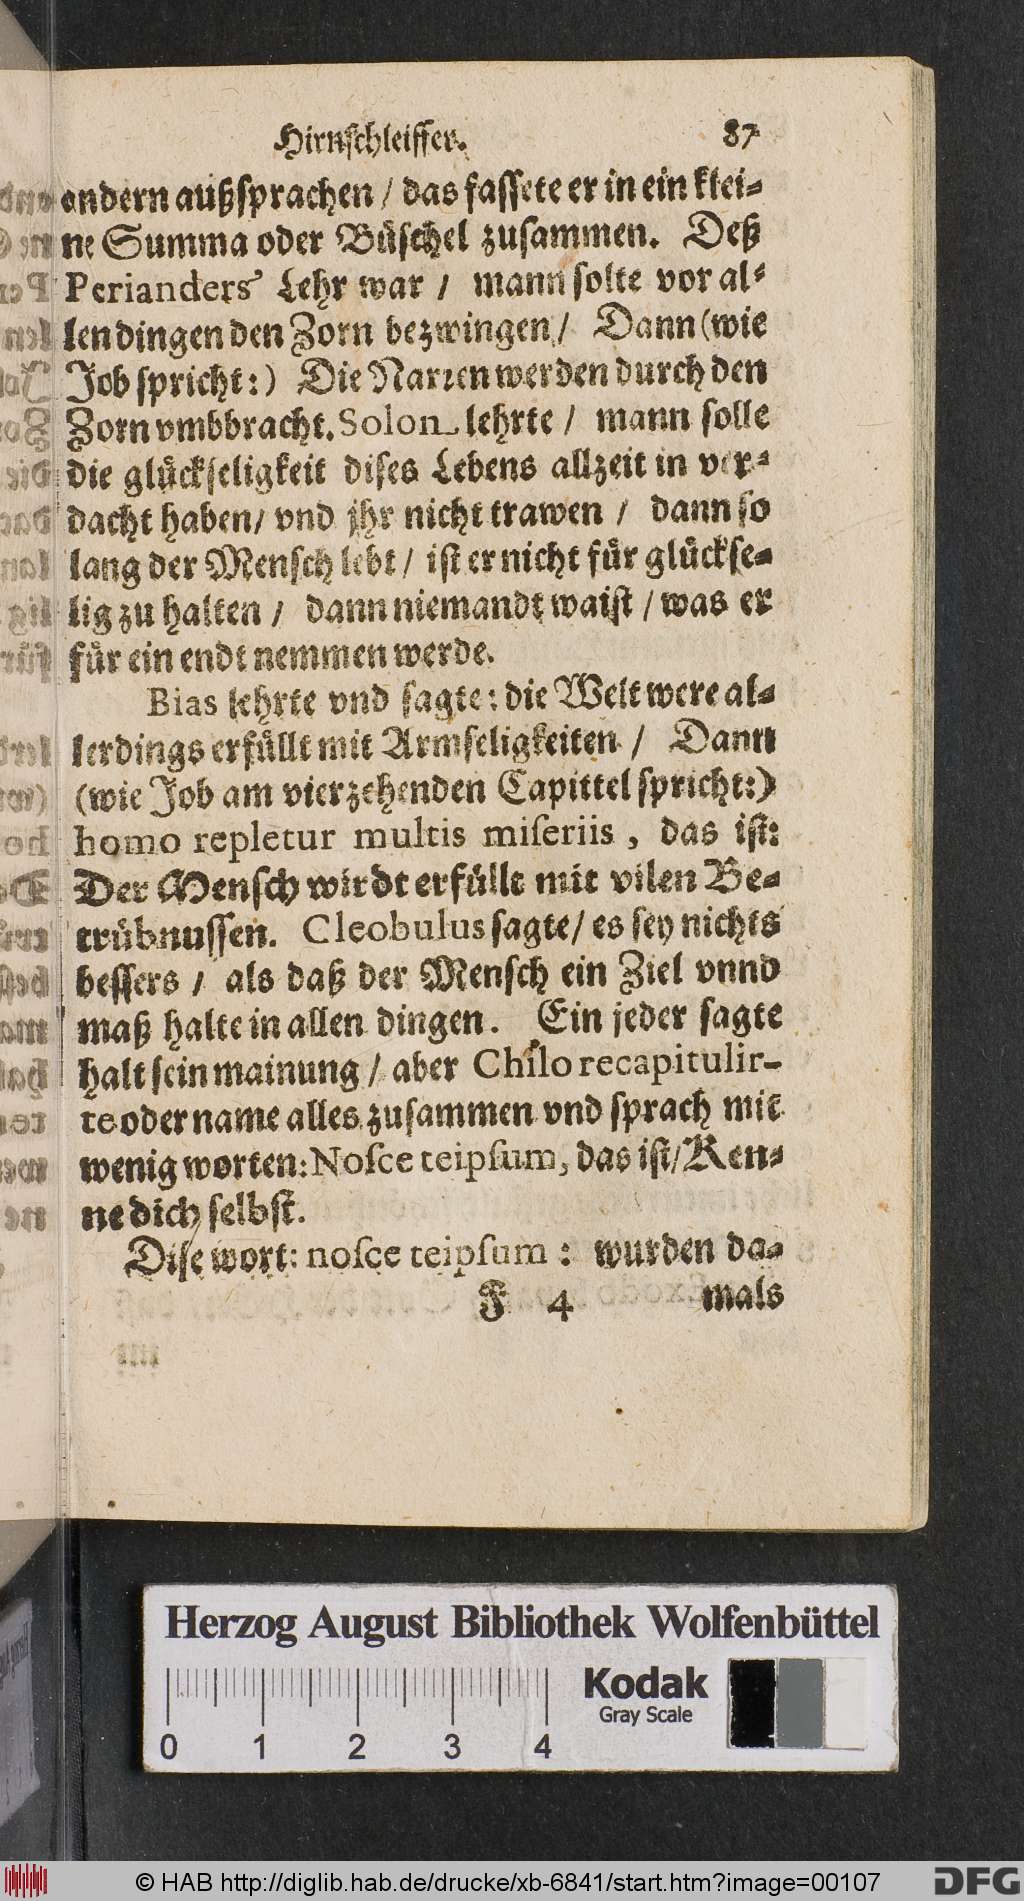 Hirnſchleiffer. 87
andern außſprachen / das faſſete er in ein klei⸗
ne Summa oder Büſchel zuſammen. Deß
Perianders Lehr war / mann ſolte vor al⸗
len dingen den Zorn bezwingen / Dann (wie
Job ſpricht:) Die Narren werden durch den
Zorn vmbbracht. Solon lehrte / mann ſolle
die glückſeligkeit diſes Lebens allzeit in ver⸗
dacht haben / vnd jhr nicht trawen / dann ſo
lang der Menſch lebt / iſt er nicht für glückſe⸗
lig zu halten / dann niemandt waiſt / was er
für ein endt nemmen werde.
Bias lehrte vnd ſagte: die Welt were al⸗
lerdings erfüllt mit Armſeligkeiten / Dann
(wie Job am vierzehenden Capittel ſpricht:)
homo repletur multis miſeriis, das iſt:
Der Menſch wirdt erfüllt mit vilen Be⸗
trübnuſſen. Cleobulus ſagte / es ſey nichts
beſſers / als daß der Menſch ein Ziel vnnd
maß halte in allen dingen. Ein jeder ſagte
halt ſein mainung / aber Chilo recapitulir-
te oder name alles zuſammen vnd ſprach mit
wenig worten: Noſce teipſum, das iſt / Ken⸗
ne dich ſelbſt.
Diſe wort: noſce teipſum: wurden da⸗
F 4 mals
Herzog August Bibliothek Wolfenbüttel
Kodak
Gray Scale
0 1 2 3 4
© HAB http://diglib.hab.de/drucke/xb-6841/start.htm?image=00107
DFG